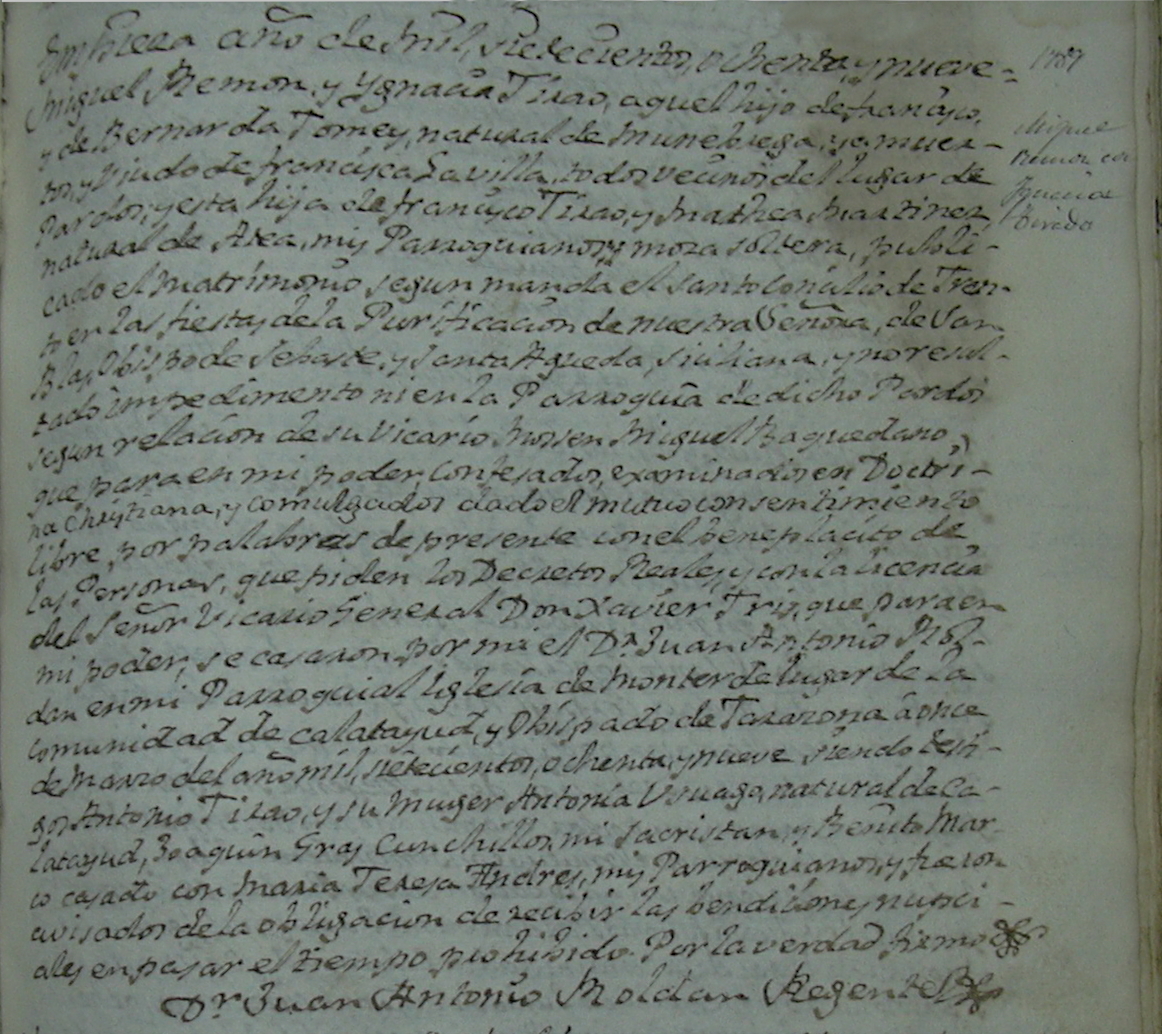 Empieza año de Mil, sietecientos, ochenta, y nueve =
1789
Miguel Remon, y Ygnacia Tirao, aquel hijo de francisco,
y de Bernarda Tomey, natural de Munebrega, ya muer-
tos, y Viudo de francisca Lavilla, todos vecinos del lugar de
Pardos, y esta hija de francisco Tirao, y Mathea Martinez
natural de Atea, mis Parroquianos, y moza soltera, publi-
cado el Matrimonio segun manda el Santo Concilio de Tren-
to en las fiestas de la Purificacion de nuestra Señora, de San
Blas, Obispo de Sebaste, y Santa Agueda, siciliana, y no resul-
tado impedimento ni en la Parroquia de dicho Pardos
segun relacion de su Vicario Mossen Miguel Baquedano,
que para en mi poder, confesados, examinados en Doctri-
na Christiana, y comulgados dado el mutuo consentimiento
libre, por palabras de presente con el beneplacito de
las Personas, que piden los Decretos Reales, y con la licencia
del Señor Vicario General Don Xavier Tris, que para en
mi poder, se casaron por mi el Dr. Juan Antonio Rol-
dan en mi Parroquial Iglesia de Monterde lugar de La
comunidad de calatayud, y Obispado de Tarazona à once
de Marzo del año mil, sietecientos, ochenta, y nueve siendo testi-
gos Antonio Tirao, y su Muger Antonia Usuaga, natural de Ca-
latayud, Joaquin Gras Cunchillos, mi Sacristan, y Benito Mar-
co casado con Maria Teresa Andres, mis Parroquianos, y fueron
avisados de la obligacion de recibir las bendiciones nupci-
ales en pasar el tiempo prohibido. Por la verdad firmo
Dr. Juan Antonio Roldan Regente
Miguel
Remon con
Ygnacia
Tirado